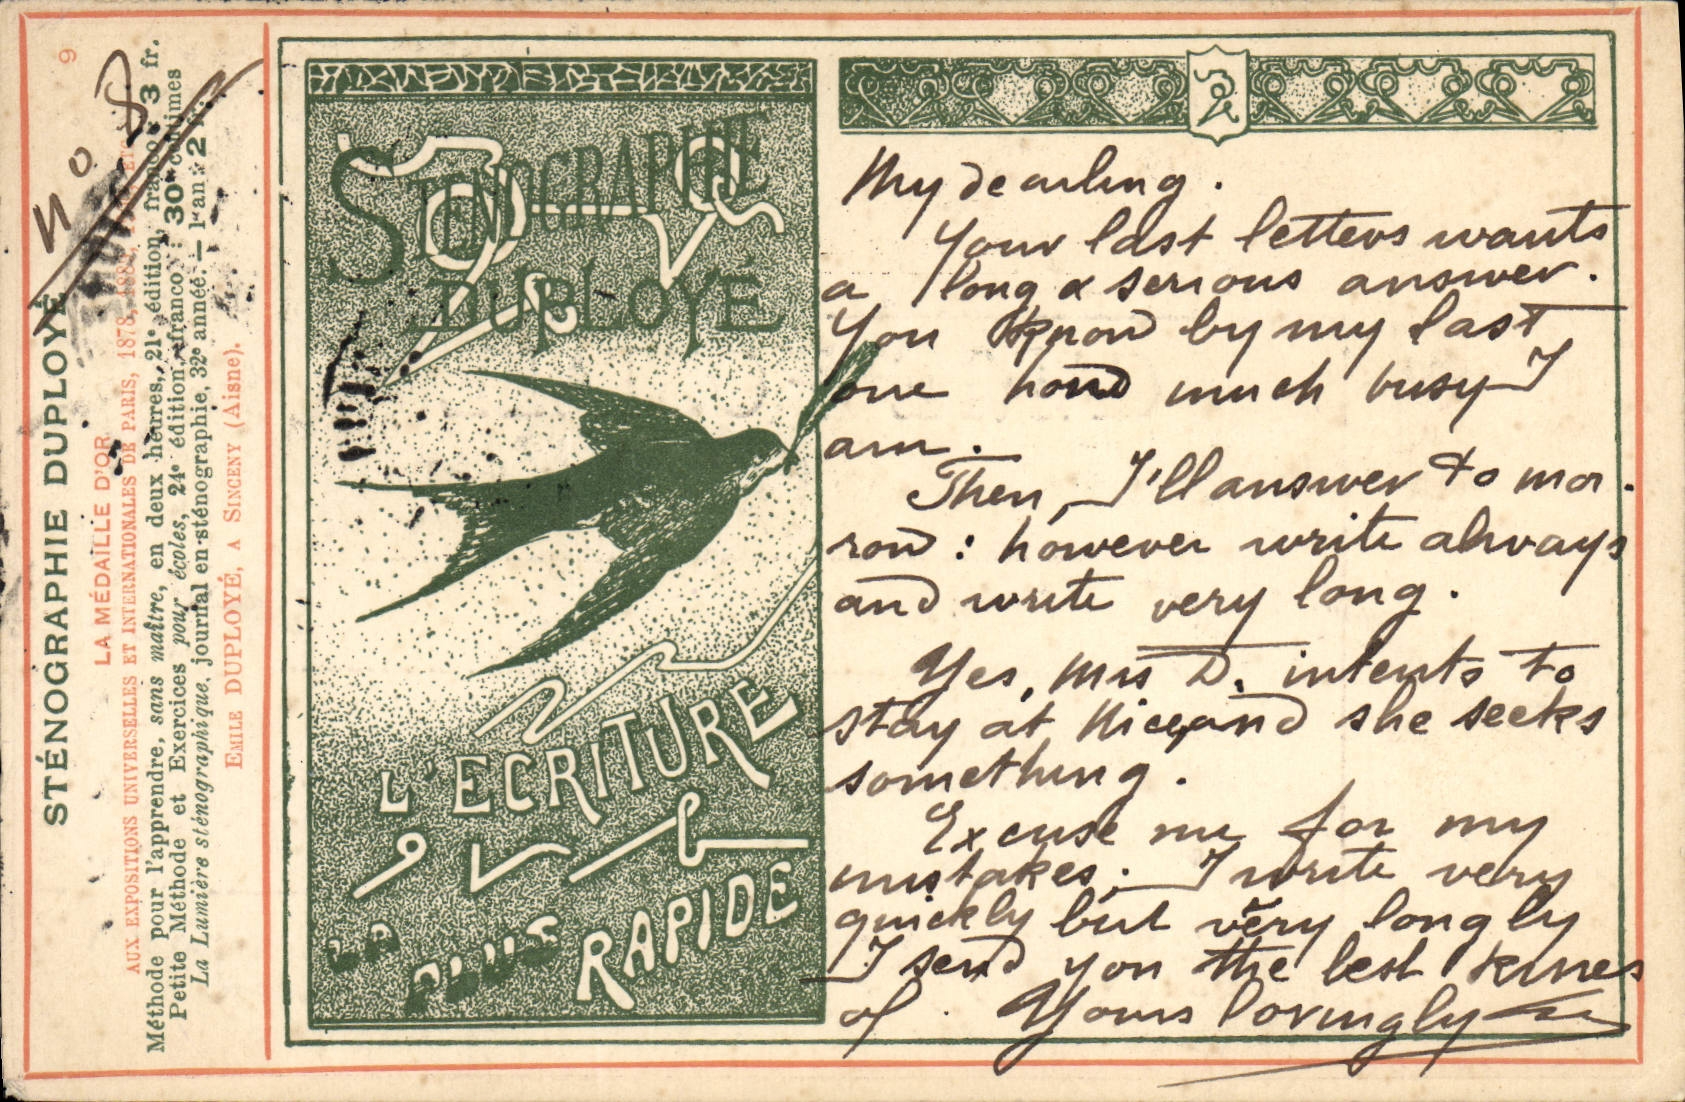 9
No 8
STÉNOGRAPHIE DUPLOYÉ
LA MÉDAILLE D'OR
AUX EXPOSITIONS UNIVERSELLES ET INTERNATIONALES DE PARIS, 1878,
Méthode pour l'apprendre, sans maître, en deux heures, 21e édition, franco: 3 fr.
Petite Méthode et Exercices pour écoles, 24e édition, franco: 30 centimes
La Lumière sténographique, journal en sténographie, 32e année. — 1 an: 2
EMILE DUPLOYÉ, A SINCENY (Aisne).
STÉNOGRAPHIE
DUPLOYÉ
L'ECRITURE
LA PLUS RAPIDE
My dearling.
Your last letters wants
a long & serious answer.
You know by my last
one how much busy I
am.
Then, I'll answer to mor.
row: however write always
and write very long.
Yes, Mrs D. intents to
stay at Nice and she seeks
something.
Excuse me for my
mistakes; I write very
quickly but very longly
I send you the best kisses
of Yours lovingly